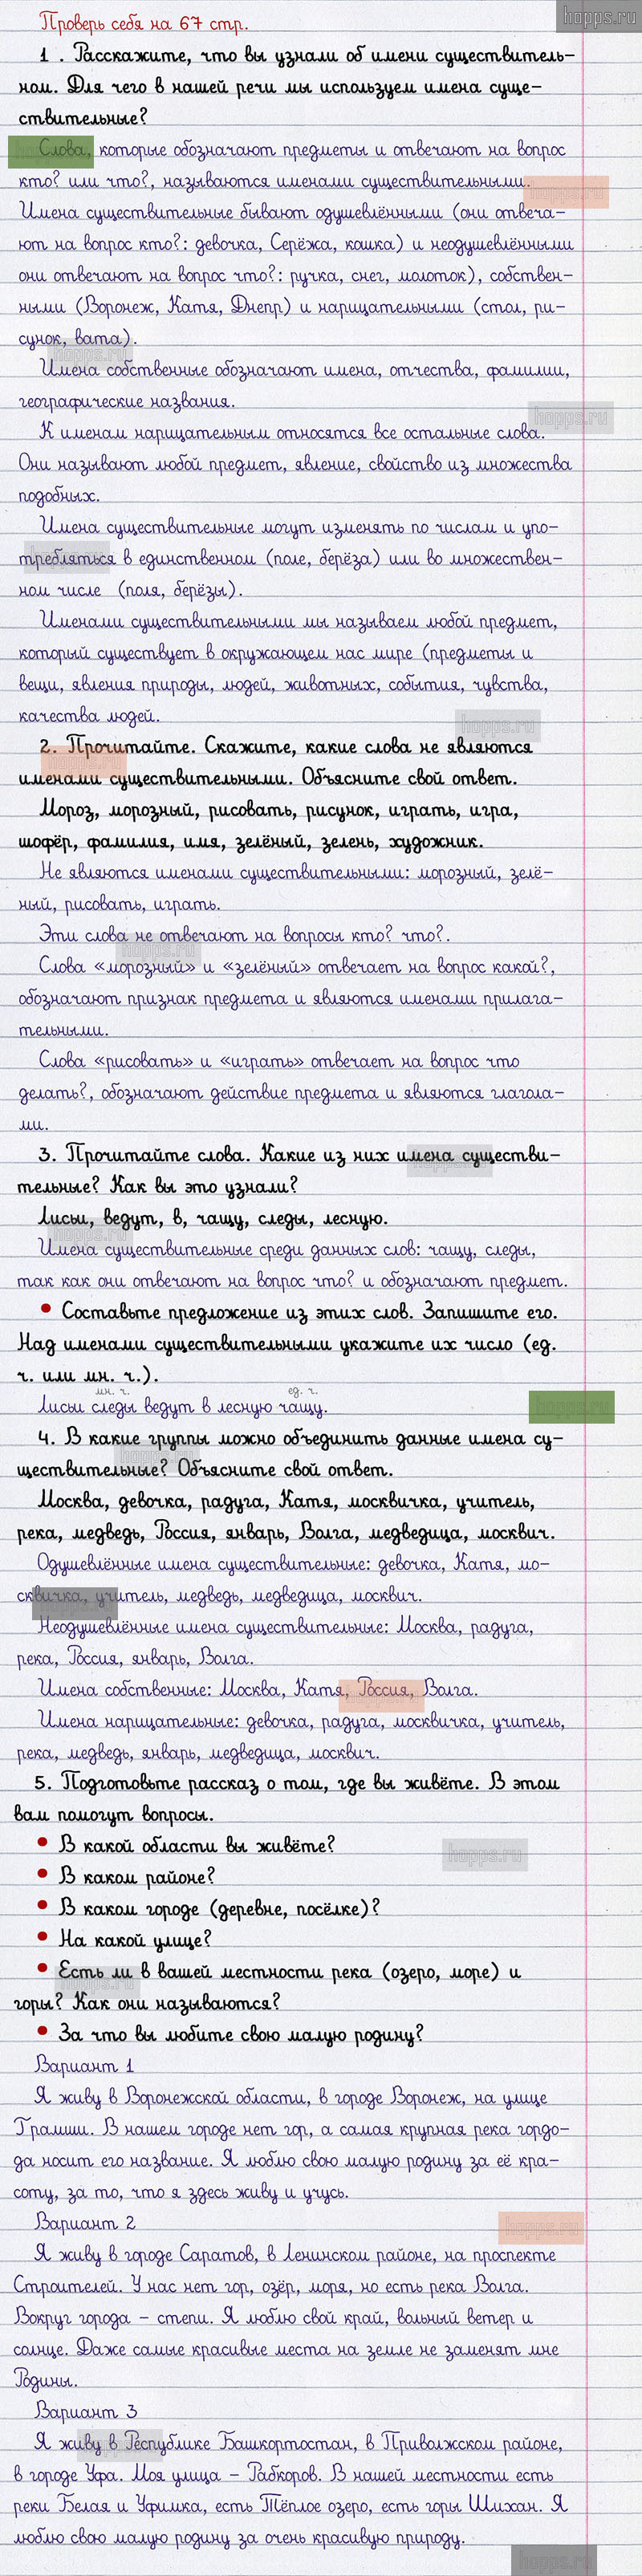 Проверь себя на 67 стр.
hopps.ru
1 . Расскажите, что вы узнали об имени существитель-
ном. Для чего в нашей речи мы используем имена суще-
ствительные?
Слова, которые обозначают предметы и отвечают на вопрос
кто? или что?, называются именами существительными.
hopps.ru
Имена существительные бывают одушевлёнными (они отвеча-
ют на вопрос кто?: девочка, Серёжа, кошка) и неодушевлёнными
они отвечают на вопрос что?: ручка, снег, молоток), собствен-
ными (Воронеж, Катя, Днепр) и нарицательными (стол, ри-
сунок, вата).
hopps.ru
Имена собственные обозначают имена, отчества, фамилии,
географические названия.
hopps.ru
К именам нарицательным относятся все остальные слова.
Они называют любой предмет, явление, свойство из множества
подобных.
Имена существительные могут изменять по числам и упо-
требляться в единственном (поле, берёза) или во множествен-
ном числе (поля, берёзы).
Именами существительными мы называем любой предмет,
который существует в окружающем нас мире (предметы и
вещи, явления природы, людей, животных, события, чувства,
качества людей.
hopps.ru
2. Прочитайте. Скажите, какие слова не являются
именами существительными. Объясните свой ответ.
Мороз, морозный, рисовать, рисунок, играть, игра,
шофёр, фамилия, имя, зелёный, зелень, художник.
Не являются именами существительными: морозный, зелё-
ный, рисовать, играть.
Эти слова не отвечают на вопросы кто? что?.
hopps.ru
Слова «морозный» и «зелёный» отвечает на вопрос какой?,
обозначают признак предмета и являются именами прилага-
тельными.
Слова «рисовать» и «играть» отвечает на вопрос что
делать?, обозначают действие предмета и являются глагола-
ми.
3. Прочитайте слова. Какие из них имена существи-
тельные? Как вы это узнали?
Лисы, ведут, в, чащу, следы, лесную.
hopps.ru
Имена существительные среди данных слов: чащу, следы,
так как они отвечают на вопрос что? и обозначают предмет.
• Составьте предложение из этих слов. Запишите его.
Над именами существительными укажите их число (ед.
ч. или мн. ч.).
мн. ч. ед. ч.
Лисы следы ведут в лесную чащу.
hopps.ru
4. В какие группы можно объединить данные имена су-
ществительные? Объясните свой ответ.
Москва, девочка, радуга, Катя, москвичка, учитель,
река, медведь, Россия, январь, Волга, медведица, москвич.
Одушевлённые имена существительные: девочка, Катя, мо-
сквичка, учитель, медведь, медведица, москвич.
Неодушевлённые имена существительные: Москва, радуга,
река, Россия, январь, Волга.
Имена собственные: Москва, Катя, Россия, Волга.
Имена нарицательные: девочка, радуга, москвичка, учитель,
река, медведь, январь, медведица, москвич.
5. Подготовьте рассказ о том, где вы живёте. В этом
вам помогут вопросы.
• В какой области вы живёте?
hopps.ru
• В каком районе?
• В каком городе (деревне, посёлке)?
• На какой улице?
• Есть ли в вашей местности река (озеро, море) и
горы? Как они называются?
• За что вы любите свою малую родину?
Вариант 1
Я живу в Воронежской области, в городе Воронеж, на улице
Грамши. В нашем городе нет гор, а самая крупная река гордо-
да носит его название. Я люблю свою малую родину за её кра-
соту, за то, что я здесь живу и учусь.
Вариант 2
hopps.ru
Я живу в городе Саратов, в Ленинском районе, на проспекте
Строителей. У нас нет гор, озёр, моря, но есть река Волга.
Вокруг города – степи. Я люблю свой край, вольный ветер и
солнце. Даже самые красивые места на земле не заменят мне
Родины.
Вариант 3
Я живу в Республике Башкортостан, в Приволжском районе,
в городе Уфа. Моя улица – Рабкоров. В нашей местности есть
реки Белая и Уфимка, есть Тёплое озеро, есть горы Шихан. Я
люблю свою малую родину за очень красивую природу.
hopps.ru